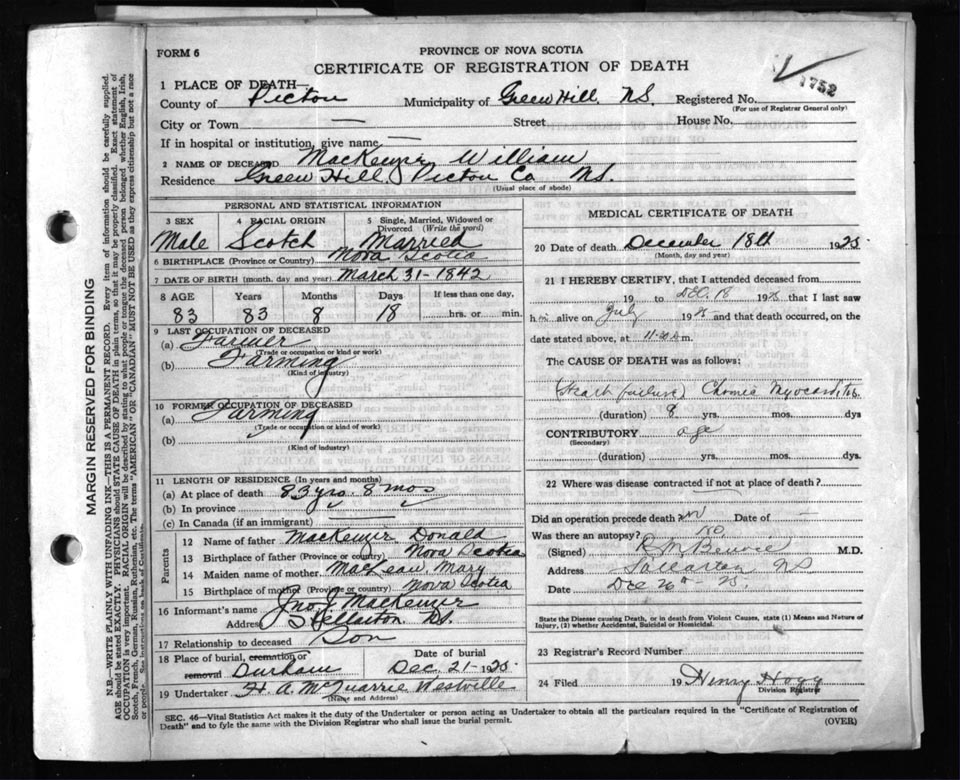 FORM 6
PROVINCE OF NOVA SCOTIA
CERTIFICATE OF REGISTRATION OF DEATH
1752
1 PLACE OF DEATH—
County of Pictou Municipality of Green Hill, N.S. Registered No.
(For use of Registrar General only)
City or Town — Street House No.
If in hospital or institution, give name —
2 NAME OF DECEASED MacKenzie William
Residence Green Hill, Pictou Co N.S.
(Usual place of abode)
PERSONAL AND STATISTICAL INFORMATION
3 SEX 4 RACIAL ORIGIN 5 Single, Married, Widowed or Divorced (Write the word)
Male Scotch Married
6 BIRTHPLACE (Province or Country) Nova Scotia
7 DATE OF BIRTH (month, day and year) March 31-1842
8 AGE Years Months Days If less than one day,
83 83 8 18 hrs. or min.
9 LAST OCCUPATION OF DECEASED
(a) Farmer
(Trade or occupation or kind or work)
(b) Farming
(Kind of industry)
10 FORMER OCCUPATION OF DECEASED
(a) Farming
(Trade or occupation or kind of work)
(b)
(Kind of industry)
11 LENGTH OF RESIDENCE (In years and months)
(a) At place of death 83 yrs. 8 mos
(b) In province
(c) In Canada (if an immigrant)
Parents
12 Name of father MacKenzie Donald
13 Birthplace of father (Province or country) Nova Scotia
14 Maiden name of mother MacLean, Mary
15 Birthplace of mother (Province or country) Nova Scotia
16 Informant's name Jno J MacKenzie
Address Stellarton N.S.
17 Relationship to deceased Son
18 Place of burial, cremation or removal Durham Date of burial Dec. 21-1925
19 Undertaker H. A. McQuarrie Westville
(Name and Address)
MEDICAL CERTIFICATE OF DEATH
20 Date of death December 18th 1925
(Month, day and year)
21 I HEREBY CERTIFY, that I attended deceased from
19 to Dec. 18 1925 that I last saw
h alive on July 1925 and that death occurred, on
date stated above, at m.
The CAUSE OF DEATH was as follows:
(Heart failure) Chronic Myocarditis
(duration) 8 yrs. mos. dys
CONTRIBUTORY age
(Secondary)
(duration) yrs. mos. dys
22 Where was disease contracted if not at place of death?
Did an operation precede death? no Date of —
Was there an autopsy? No.
(Signed) M.D.
Address Stellarton N.S
Date Dec 26th 25.
State the Disease causing Death, or in death from Violent Causes, state (1) Means and Nature of Injury, (2) whether Accidental, Suicidal or Homicidal.
23 Registrar's Record Number
24 Filed 19 Henry Hogg
Division Registrar
SEC. 46—Vital Statistics Act makes it the duty of the Undertaker or person acting as Undertaker to obtain all the particulars required in the "Certificate of Registration of
Death" and to fyle the same with the Division Registrar who shall issue the burial permit.
(OVER)
MARGIN RESERVED FOR BINDING
N.B.—WRITE PLAINLY WITH UNFADING INK—THIS IS A PERMANENT RECORD. Every item of information should be carefully supplied.
AGE should be stated EXACTLY. PHYSICIANS should STATE CAUSE OF DEATH in plain terms, so that it may be properly classified. Exact statement of
OCCUPATION is very important. RACIAL ORIGIN will be described by stating to what people or tongue the deceased person belonged whether English, Irish,
Scotch, French, German, Russian, Ruthenian, etc. The terms "AMERICAN" OR "CANADIAN" MUST NOT BE USED as they express citizenship but not a race
or people. See instructions on back of Certificate.